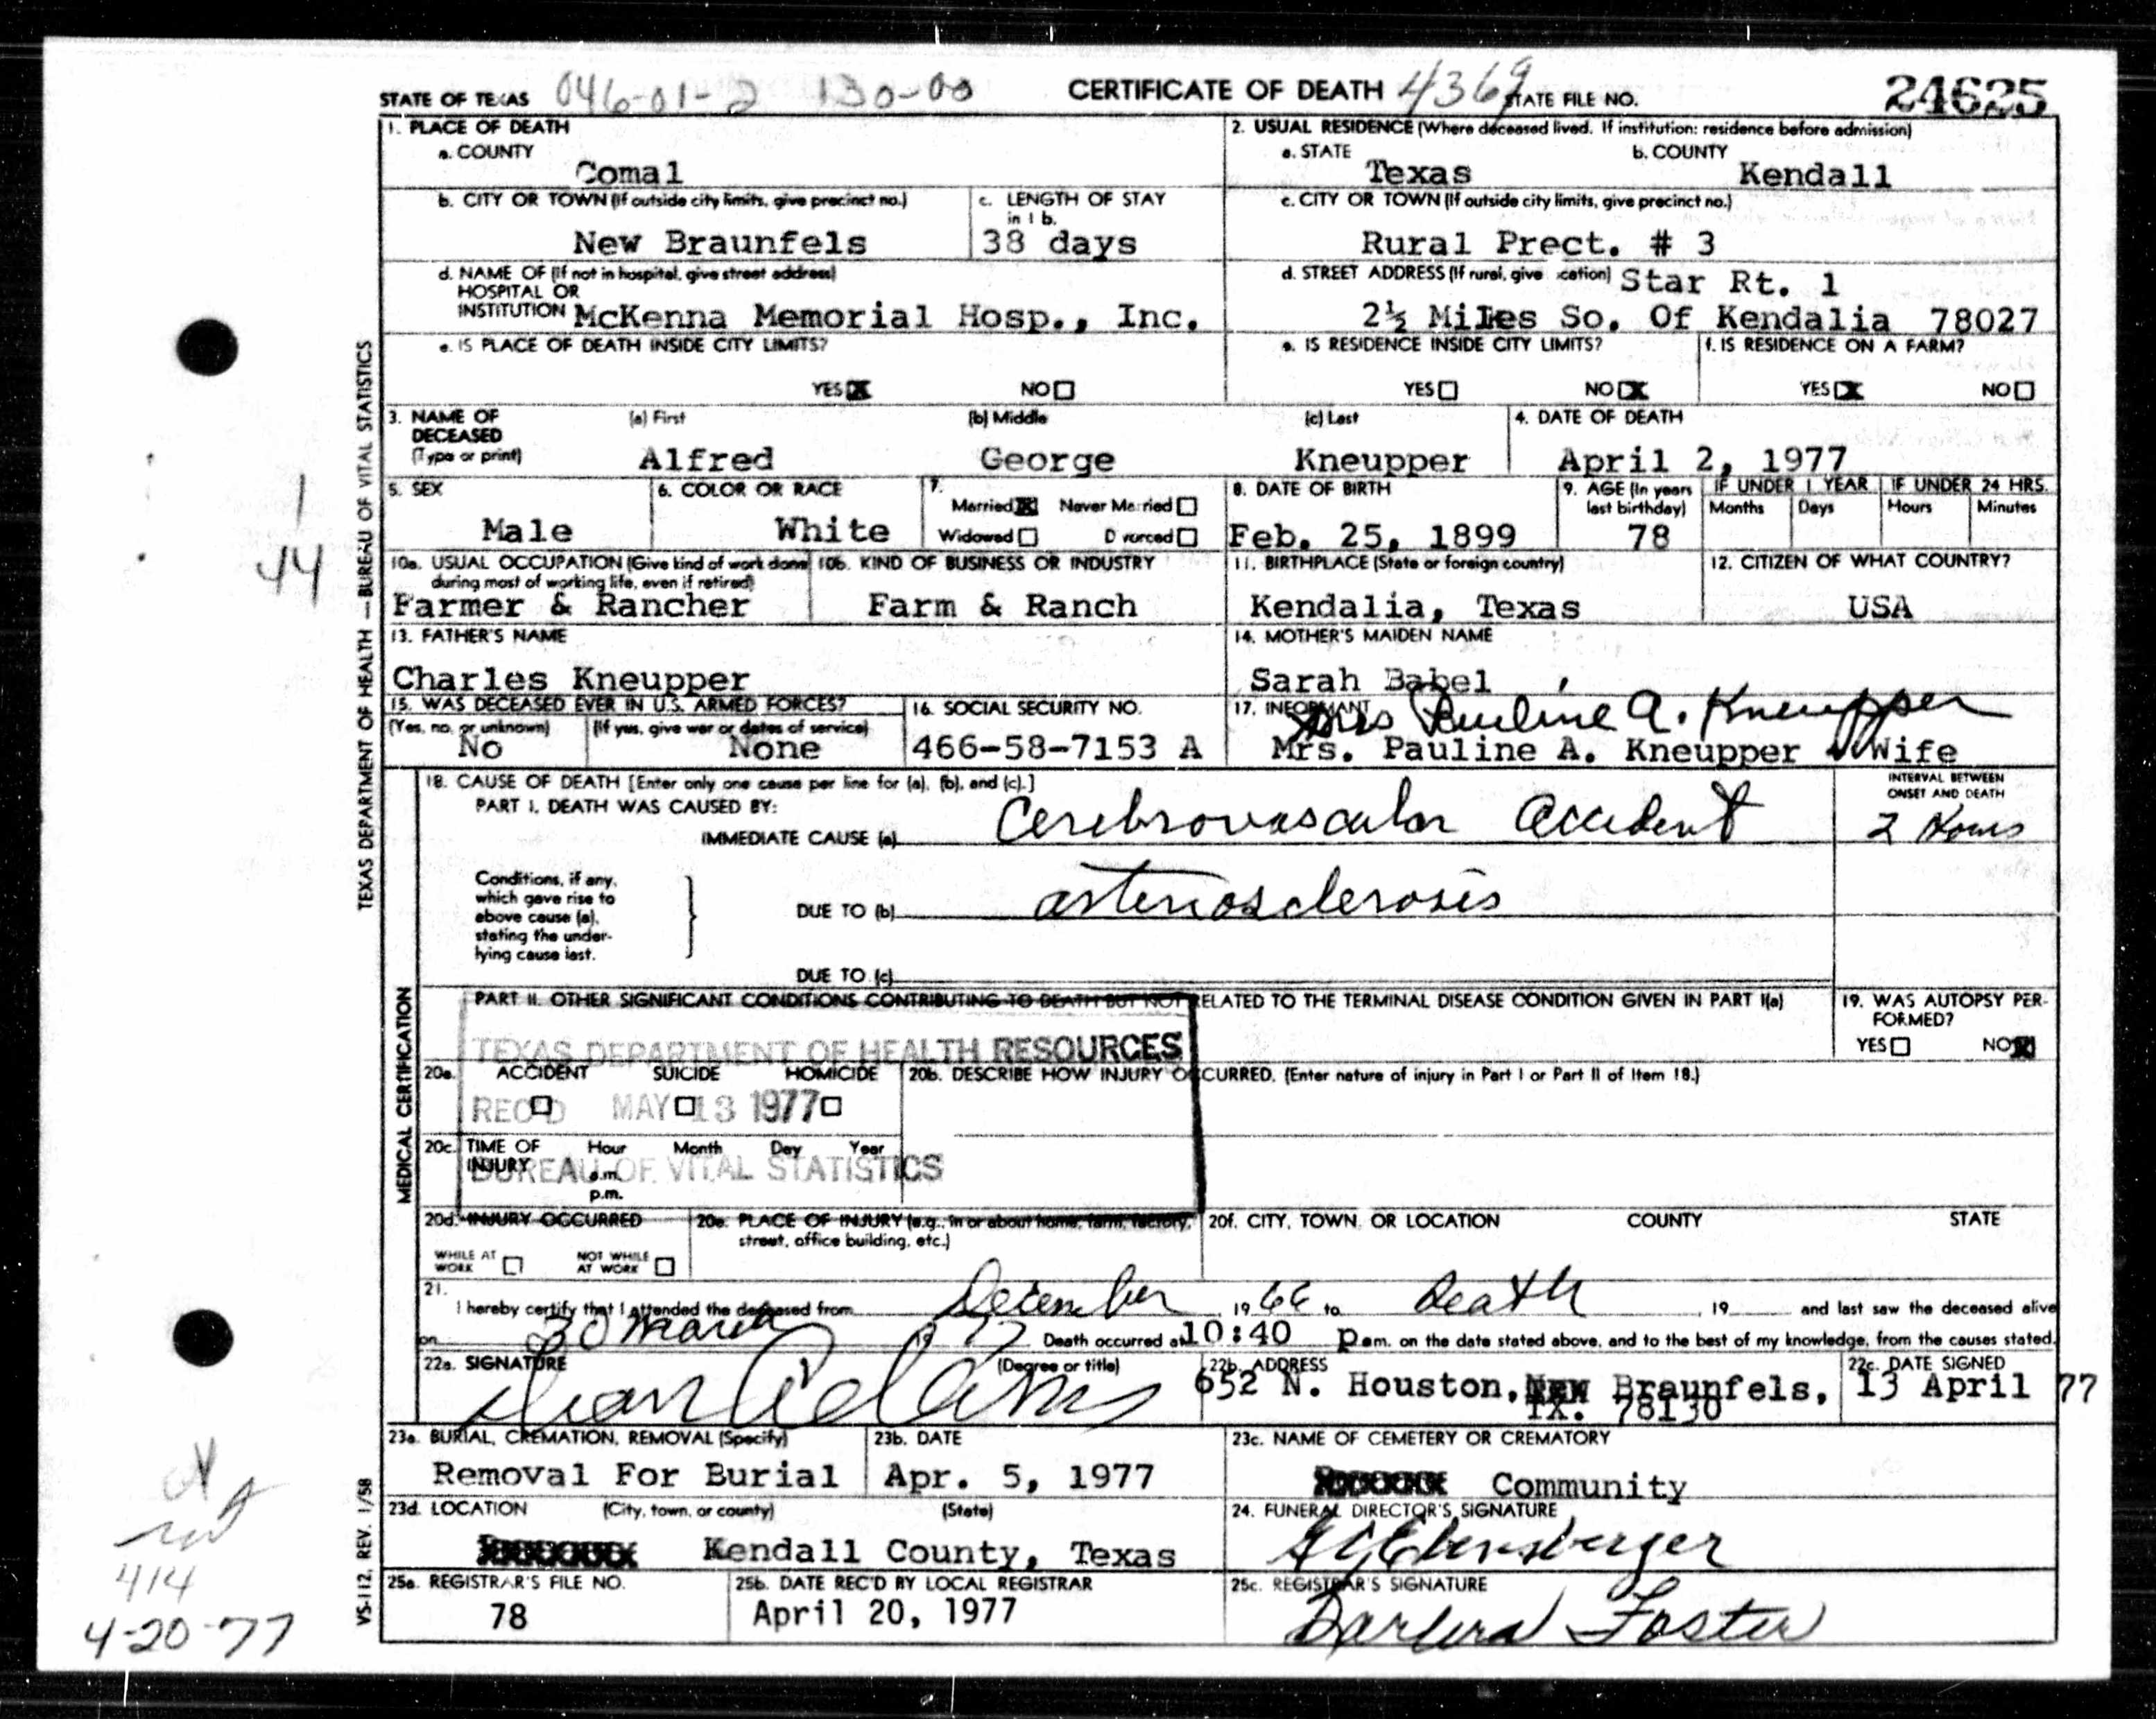 STATE OF TEXAS 046-01-2 130-00 CERTIFICATE OF DEATH 4369 STATE FILE NO. 24625
1. PLACE OF DEATH
a. COUNTY
Comal
2. USUAL RESIDENCE (Where deceased lived. If institution: residence before admission)
a. STATE b. COUNTY
Texas Kendall
b. CITY OR TOWN (If outside city limits, give precinct no.)
New Braunfels
c. LENGTH OF STAY
in 1 b.
38 days
c. CITY OR TOWN (If outside city limits, give precinct no.)
Rural Prect. # 3
d. NAME OF (If not in hospital, give street address)
HOSPITAL OR
INSTITUTION McKenna Memorial Hosp., Inc.
d. STREET ADDRESS (If rural, give location) Star Rt. 1
2½ Miles So. Of Kendalia 78027
e. IS PLACE OF DEATH INSIDE CITY LIMITS?
YES X NO
e. IS RESIDENCE INSIDE CITY LIMITS?
YES NO X
f. IS RESIDENCE ON A FARM?
YES X NO
3. NAME OF DECEASED
(Type or print)
(a) First (b) Middle (c) Last
Alfred George Kneupper
4. DATE OF DEATH
April 2, 1977
5. SEX
Male
6. COLOR OR RACE
White
7.
Married X Never Married
Widowed Divorced
8. DATE OF BIRTH
Feb. 25, 1899
9. AGE (In years
last birthday)
78
IF UNDER 1 YEAR IF UNDER 24 HRS.
Months Days Hours Minutes
10a. USUAL OCCUPATION (Give kind of work done
during most of working life, even if retired)
Farmer & Rancher
10b. KIND OF BUSINESS OR INDUSTRY
Farm & Ranch
11. BIRTHPLACE (State or foreign country)
Kendalia, Texas
12. CITIZEN OF WHAT COUNTRY?
USA
13. FATHER'S NAME
Charles Kneupper
14. MOTHER'S MAIDEN NAME
Sarah Babel
15. WAS DECEASED EVER IN U.S. ARMED FORCES?
(Yes, no, or unknown) (If yes, give war or dates of service)
No None
16. SOCIAL SECURITY NO.
466-58-7153 A
17. INFORMANT
Mrs Pauline A. Kneupper
Mrs. Pauline A. Kneupper Wife
18. CAUSE OF DEATH [Enter only one cause per line for (a), (b), and (c).]
PART I. DEATH WAS CAUSED BY:
IMMEDIATE CAUSE (a) Cerebrovascular accident
INTERVAL BETWEEN
ONSET AND DEATH
2 Hours
Conditions, if any,
which gave rise to
above cause (a),
stating the under-
lying cause last.
DUE TO (b) arteriosclerosis
DUE TO (c)
PART II. OTHER SIGNIFICANT CONDITIONS CONTRIBUTING TO DEATH BUT NOT RELATED TO THE TERMINAL DISEASE CONDITION GIVEN IN PART I(a)
19. WAS AUTOPSY PER-
FORMED?
YES NO X
TEXAS DEPARTMENT OF HEALTH RESOURCES
REC'D MAY 13 1977
BUREAU OF VITAL STATISTICS
20a. ACCIDENT SUICIDE HOMICIDE
20b. DESCRIBE HOW INJURY OCCURRED. (Enter nature of injury in Part I or Part II of Item 18.)
20c. TIME OF INJURY
Hour Month Day Year
a.m.
p.m.
20d. INJURY OCCURRED
WHILE AT WORK NOT WHILE AT WORK
20e. PLACE OF INJURY (e.g., in or about home, farm, factory,
street, office building, etc.)
20f. CITY, TOWN, OR LOCATION COUNTY STATE
21.
I hereby certify that I attended the deceased from December , 19 66 to Death , 19 and last saw the deceased alive
on 30 March 19 77 Death occurred at 10:40 p.m. on the date stated above, and to the best of my knowledge, from the causes stated.
22a. SIGNATURE (Degree or title)
22b. ADDRESS
652 N. Houston, New Braunfels,
TX. 78130
22c. DATE SIGNED
13 April 77
23a. BURIAL, CREMATION, REMOVAL (Specify)
Removal For Burial
23b. DATE
Apr. 5, 1977
23c. NAME OF CEMETERY OR CREMATORY
Community
23d. LOCATION (City, town, or county) (State)
Kendall County, Texas
24. FUNERAL DIRECTOR'S SIGNATURE
25a. REGISTRAR'S FILE NO.
78
25b. DATE REC'D BY LOCAL REGISTRAR
April 20, 1977
25c. REGISTRAR'S SIGNATURE
Barbara Foster
TEXAS DEPARTMENT OF HEALTH — BUREAU OF VITAL STATISTICS
MEDICAL CERTIFICATION
VS-112, REV. 1/58
1
44
414
4-20-77